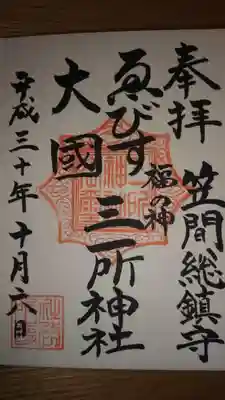 奉拝
笠間総鎮守
福の神
ゑびす
大國
三所神社
平成三十年十月六日